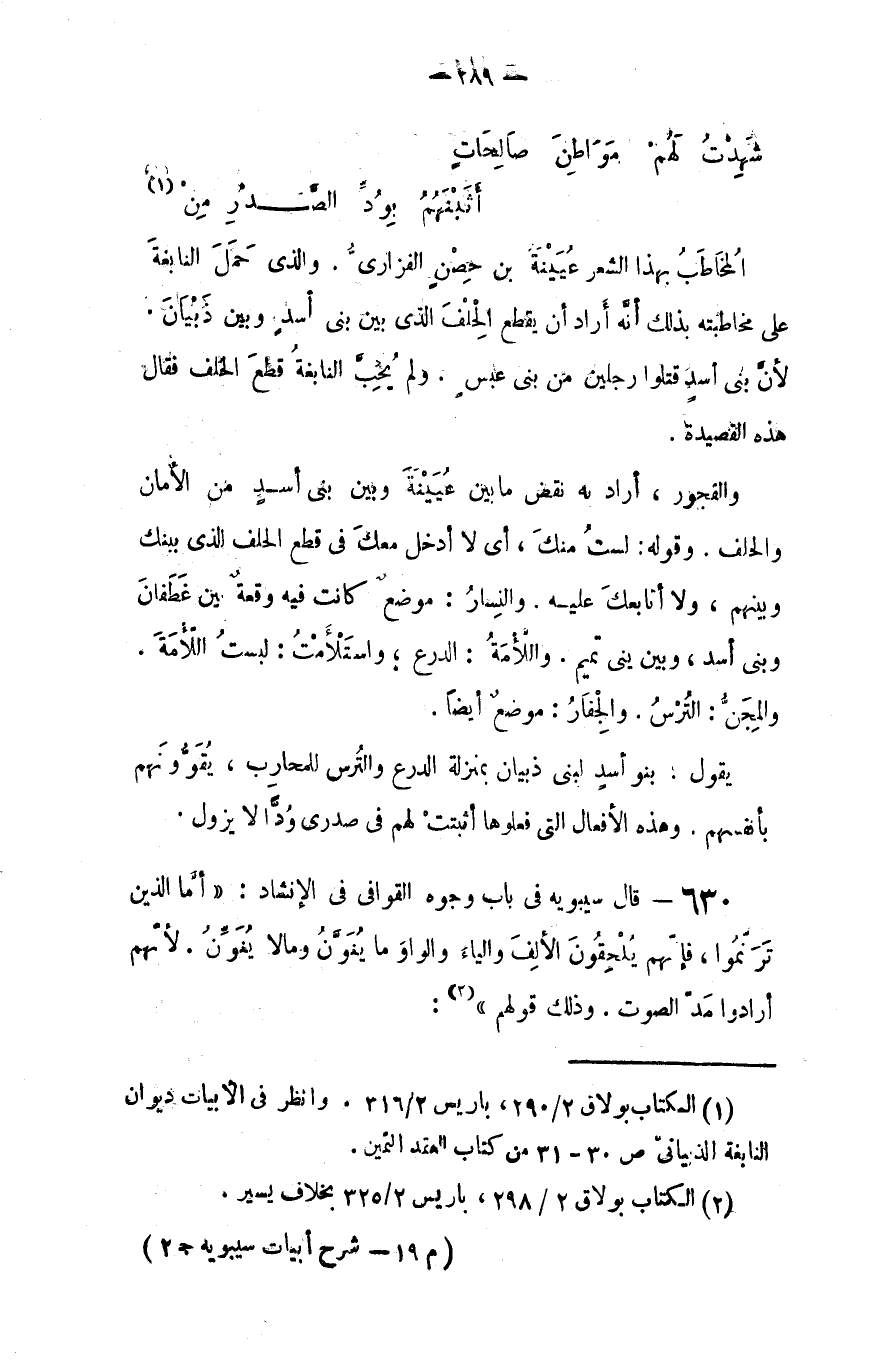 — ٢٨٩ —
شَهِدْتُ لَهُمْ مَوَاطِنَ صَالِحَاتٍ
أَتَيْنَهُمُ بِوُدِّ الصَّــدْرِ مِنْ (١)
اُلمخَاطَبُ بهذا الشعر عُيَيْنَةَ بن حِصْنٍ الفزارىُّ . والذى حَمَلَ النابغةَ
على مخاطبته بذلك أنَّه أَراد أن يقطع الِحْلفَ الذى بين بنى أسدٍ وبين ذَبْيَانَ .
لأنَّ بنى أسدٍ قتلوا رجلين من بنى عبسٍ . ولم يُحِبَّ النابغةُ قطْعَ الحلف فقال
هذه القصيدة .
والفجور ، أراد به نقض مابين عُيَيْنَةَ وبين بنى أســدٍ من الأمان
والحلف . وقوله: لستُ منكَ ، أى لا أدخل معكَ فى قطع الحلف الذى بينك
وبينهم ، ولا أتابعكَ عليــه . والنِسارُ : موضعٌ كانت فيه وقعةٌ بين غَطَفانَ
وبنى أسد ، وبين بنى تميم . واللَّأْمَةُ : الدرع ؛ واستَلْأَمْتُ : لبستُ اللَّأْمَةَ .
والمِجَنُّ : التُرْسُ . والْجِفَارُ : موضعٌ أيضاً .
يقول : بنو أسدٍ لبنى ذبيان بمنزلة الدرع والتُرس للمحارِب ، يُقَوُّونَهم
بأنفسهم . وهذه الأفعال التى فعلوها أثبتتْ لهم فى صدرى وُدًّا لا يزول .
٦٣٠ — قال سيبويه فى باب وجوه القوافى فى الإنشاد : « أمَّا الذين
تَرَنَّمُوا ، فإنّهم يُلْحِقُونَ الألِفَ والياءَ والواوَ ما يُنَوَّنُ ومالا يُنَوَّنُ . لأنّهم
أرادوا مَدّ الصوت . وذلك قولهم »(٢) :
(١) المكتاب بولاق ٢/٢٩٠، باريس ٢/٣١٦ . وانظر فى الأبيات ديوان
النابغة الذبيانىّ ص ٣٠ – ٣١ من كتاب العقد الثمين .
(٢) الكتاب بولاق ٢ / ٢٩٨ ، باريس ٢/٣٢٥ بخلاف يسير .
( م ١٩ — شرح أبيات سيبويه ج ٢ )